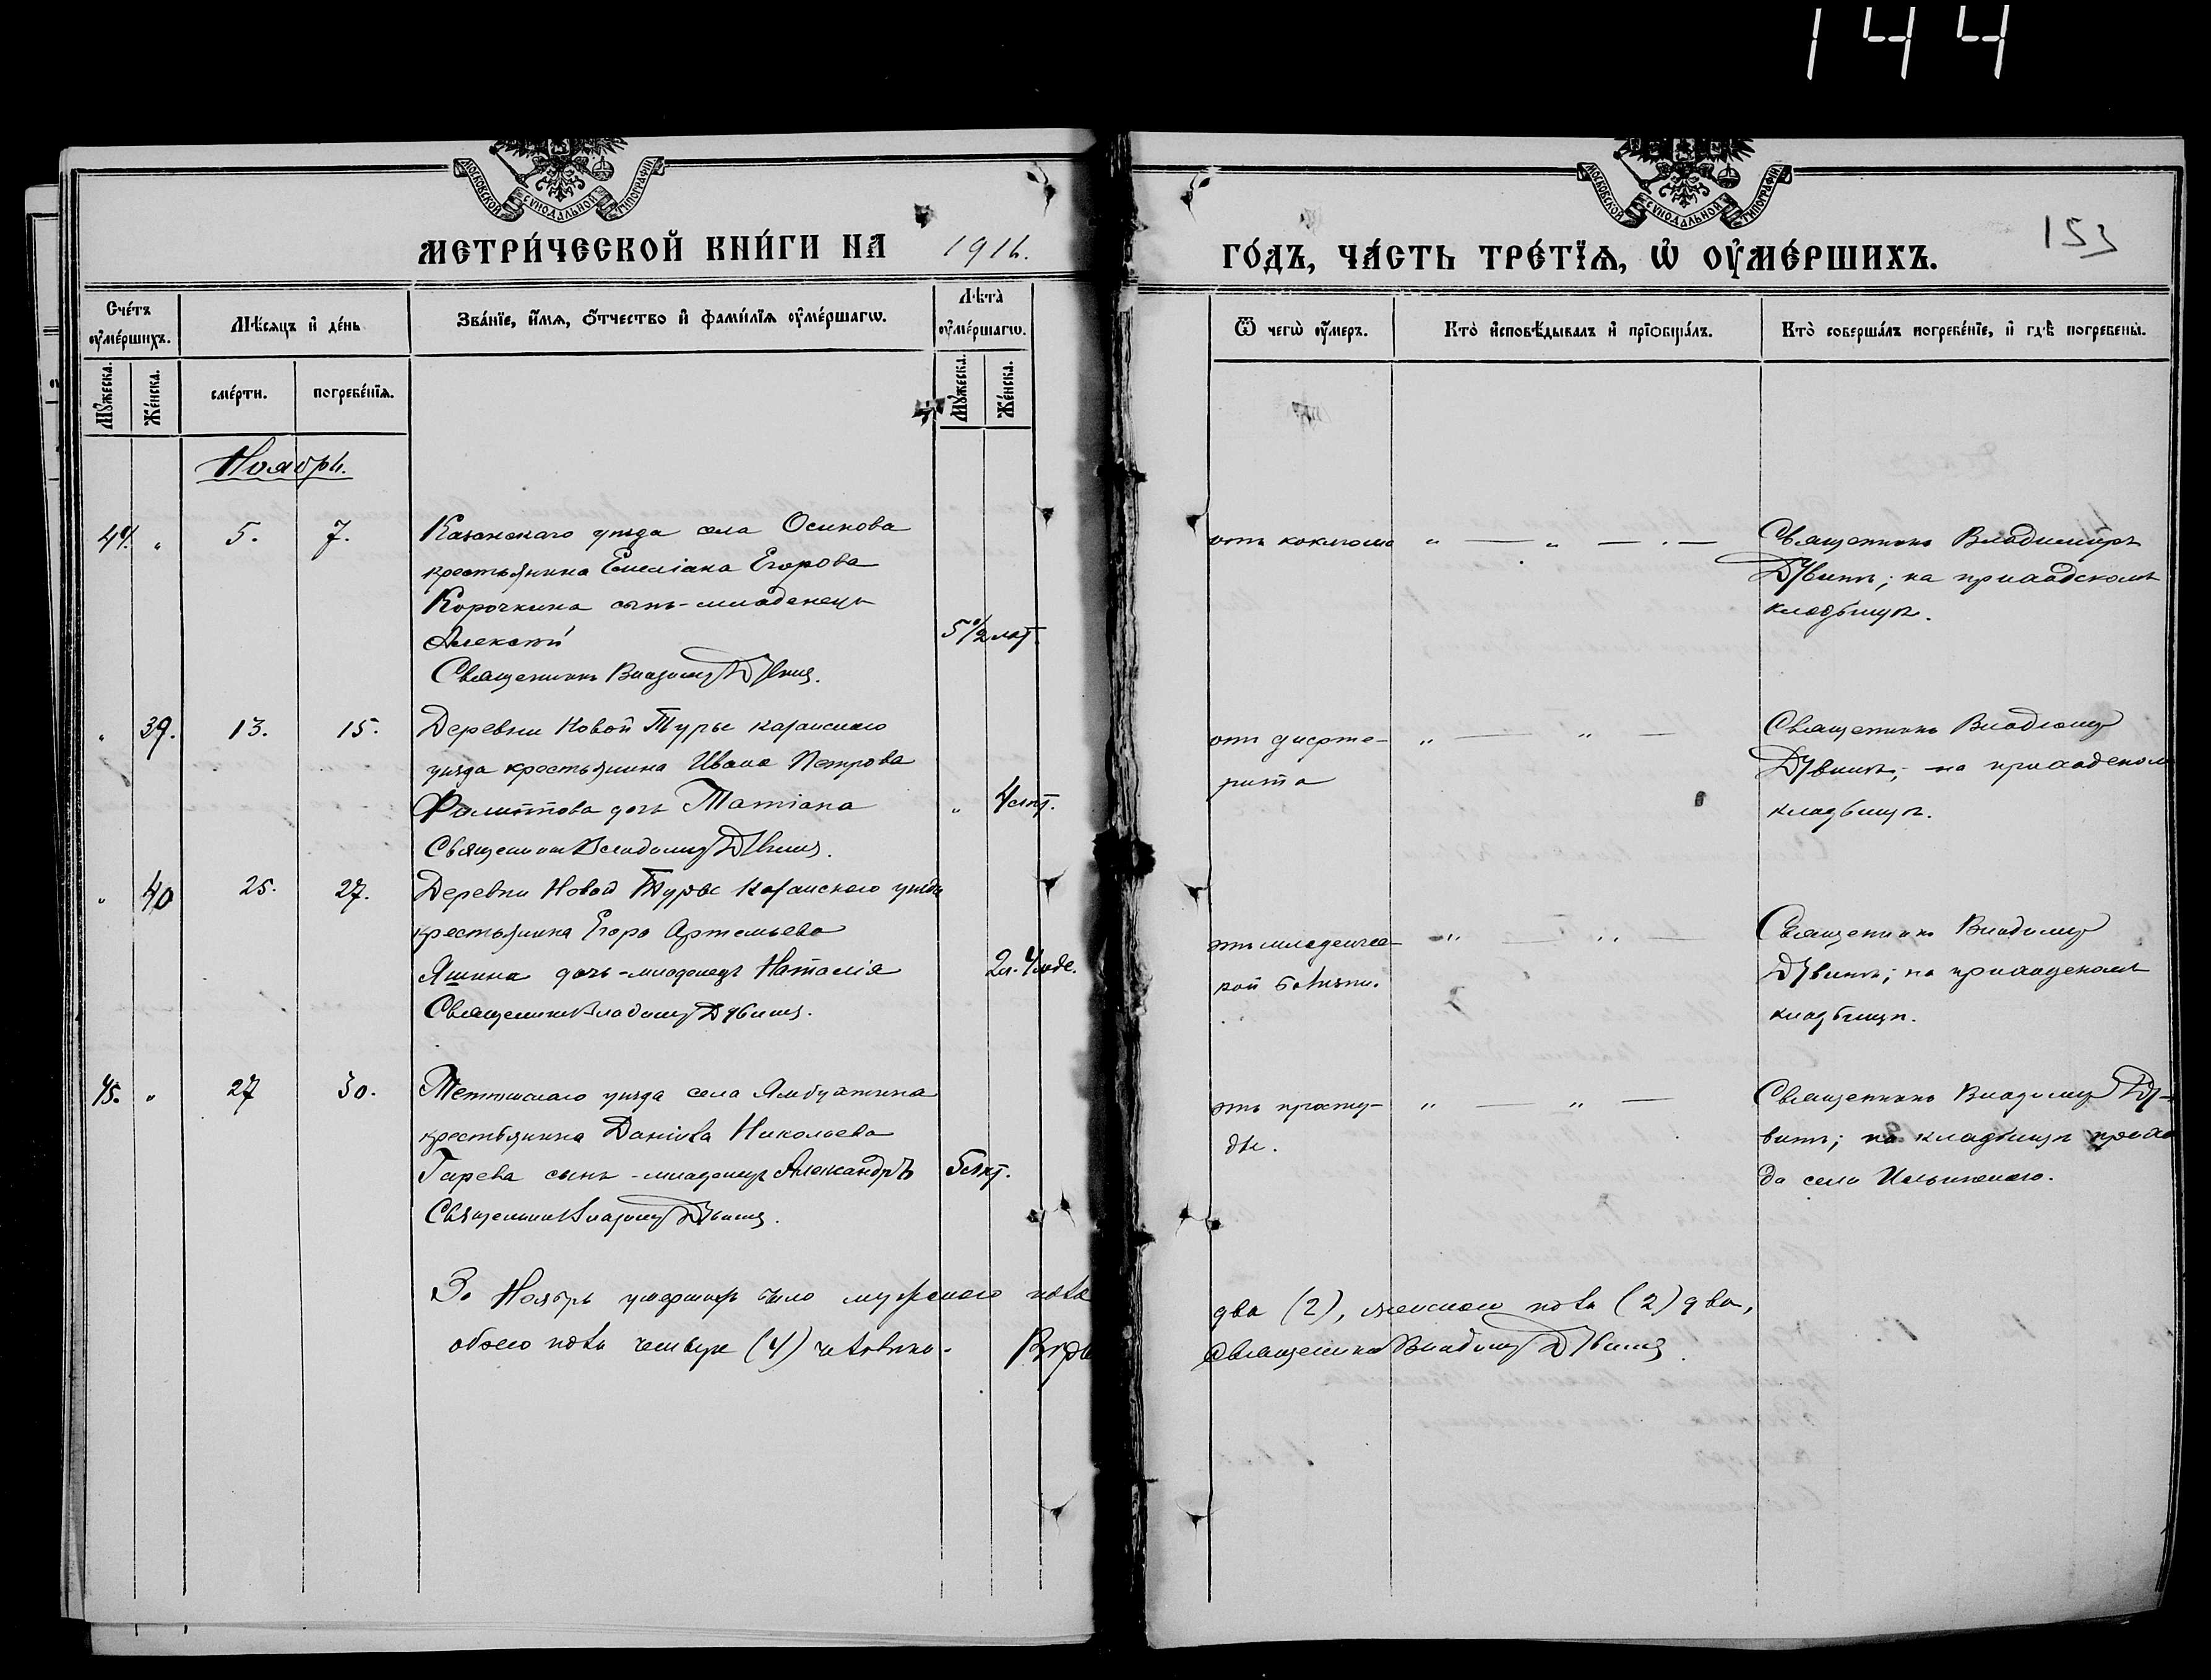 144
МОСКОВСКОЙ СѴНОДАЛЬНОЙ ТИПОГРАФІИ
МОСКОВСКОЙ СѴНОДАЛЬНОЙ ТИПОГРАФІИ
МЕТРИ́ЧЕСКОЙ КНИ́ГИ НА 1916. ГО́ДЪ, ЧА́СТЬ ТРЕ́ТЇѦ, Ѡ҆ ОУ҆МЕ́РШИХЪ.
153
Сче́тъ оу҆ме́ршихъ.
Мꙋ́жеска.
Же́нска.
Мѣ́сяцъ и҆ де́нь
сме́рти.
погребе́нїѧ.
Зва́нїе, и҆́мѧ, ѻ҆́тчество и҆ фами́лїѧ оу҆ме́ршагѡ.
Лѣ́та оу҆ме́ршагѡ.
Мꙋ́жеска.
Же́нска.
Ѿ чегѡ̀ оу҆́меръ.
Кто̀ и҆сповѣ́дывалъ и҆ прїѡбща́лъ.
Кто̀ соверша́лъ погребе́нїе, и҆ гдѣ̀ погребены̀.
Ноябрь.
44. " 5. 7.
Казанскаго уѣзда села Осинова
крестьянина Емеліана Егорова
Корочкина сынъ-младенецъ
Алексѣй
5 1/2 лѣт.
Священникъ Владимиръ Дубвинъ.
отъ коклюша
" — " — " —
Священникъ Владимиръ
на приходскомъ
кладбищѣ.
" 39. 13. 15.
Деревни Новой Туры Казанскаго
уѣзда крестьянина Ивана Петрова
Филиппова дочь Татіана
" 4 лѣт.
Священникъ Владимиръ
отъ дифте-
рита
" — " —
Священникъ Владимиръ
на приходском
кладбищѣ.
" 40 25. 27.
Деревни Новой Туры Казанскаго уѣзда
крестьянина Егора Артемьева
Яшина дочь-младенецъ Наталія
2 г. 4 мѣс.
Священникъ Владимиръ
отъ младенчес-
кой болѣзни.
" — " —
Священникъ Владимиръ
на приходскомъ
кладбищѣ.
45. " 27 30.
Тетюшскаго уѣзда села Ямбухтина
крестьянина Даніила Николаева
Гарева сынъ-младенецъ Александръ
5 лѣт.
Священникъ Владимиръ
отъ просту-
ды.
" — " —
Священникъ Владимиръ
на кладбищѣ прихо
да села Ильинскаго.
За Ноябрь умершихъ было мужского пола два (2), женскаго пола (2) два,
обоего пола четыре (4) человѣка. Вѣрно Священникъ Владимиръ